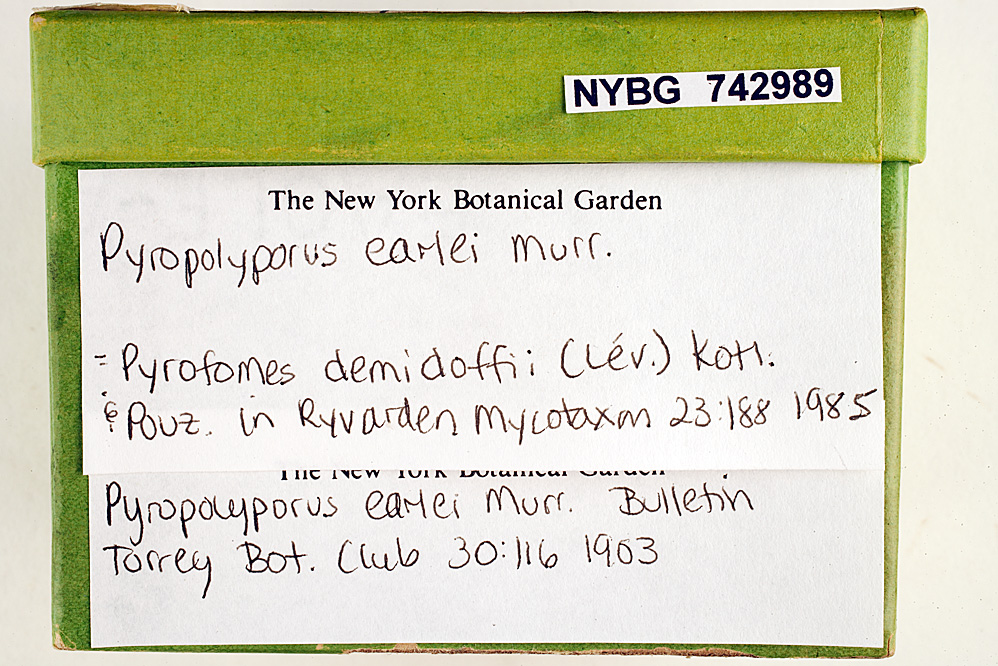 NYBG 742989
The New York Botanical Garden
Pyropolyporus earlei Murr.
= Pyrofomes demidoffii (Lév.) Kotl.
& Pouz. in Ryvarden Mycotaxon 23:188 1985
The New York Botanical Garden
Pyropolyporus earlei Murr. Bulletin
Torrey Bot. Club 30:116 1903